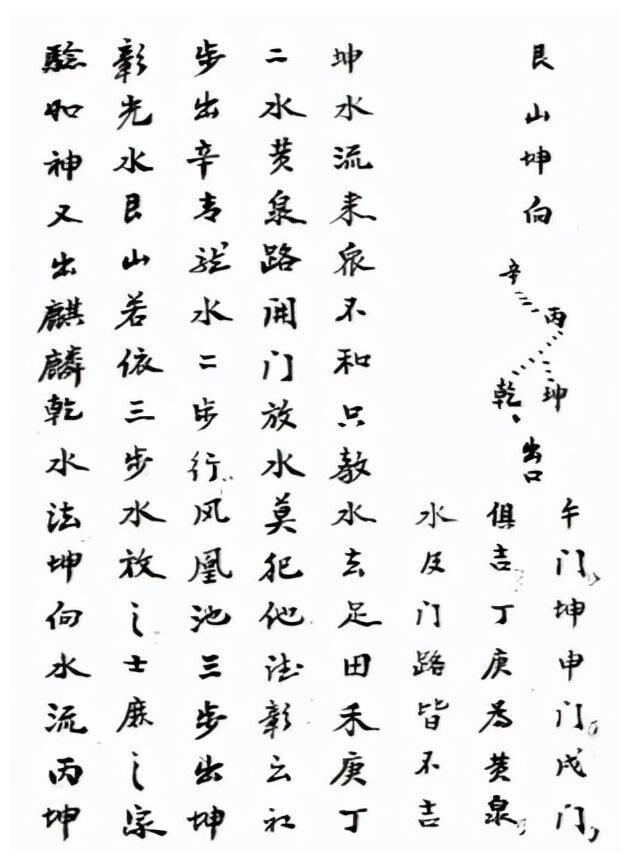 艮山坤向
辛
丙
乾
坤
出口
午门坤申门戌门
俱吉丁庚为黄泉
水及门路皆不吉
坤水流来不和只教水去足田禾庚丁
二水黄泉路開门放水莫犯他彰云初
步出辛青龙水二步行风凰池三步出坤
彰光水艮山若依三步水放之士庶之家
騐如神又出麒麟乾水法坤向水流丙坤